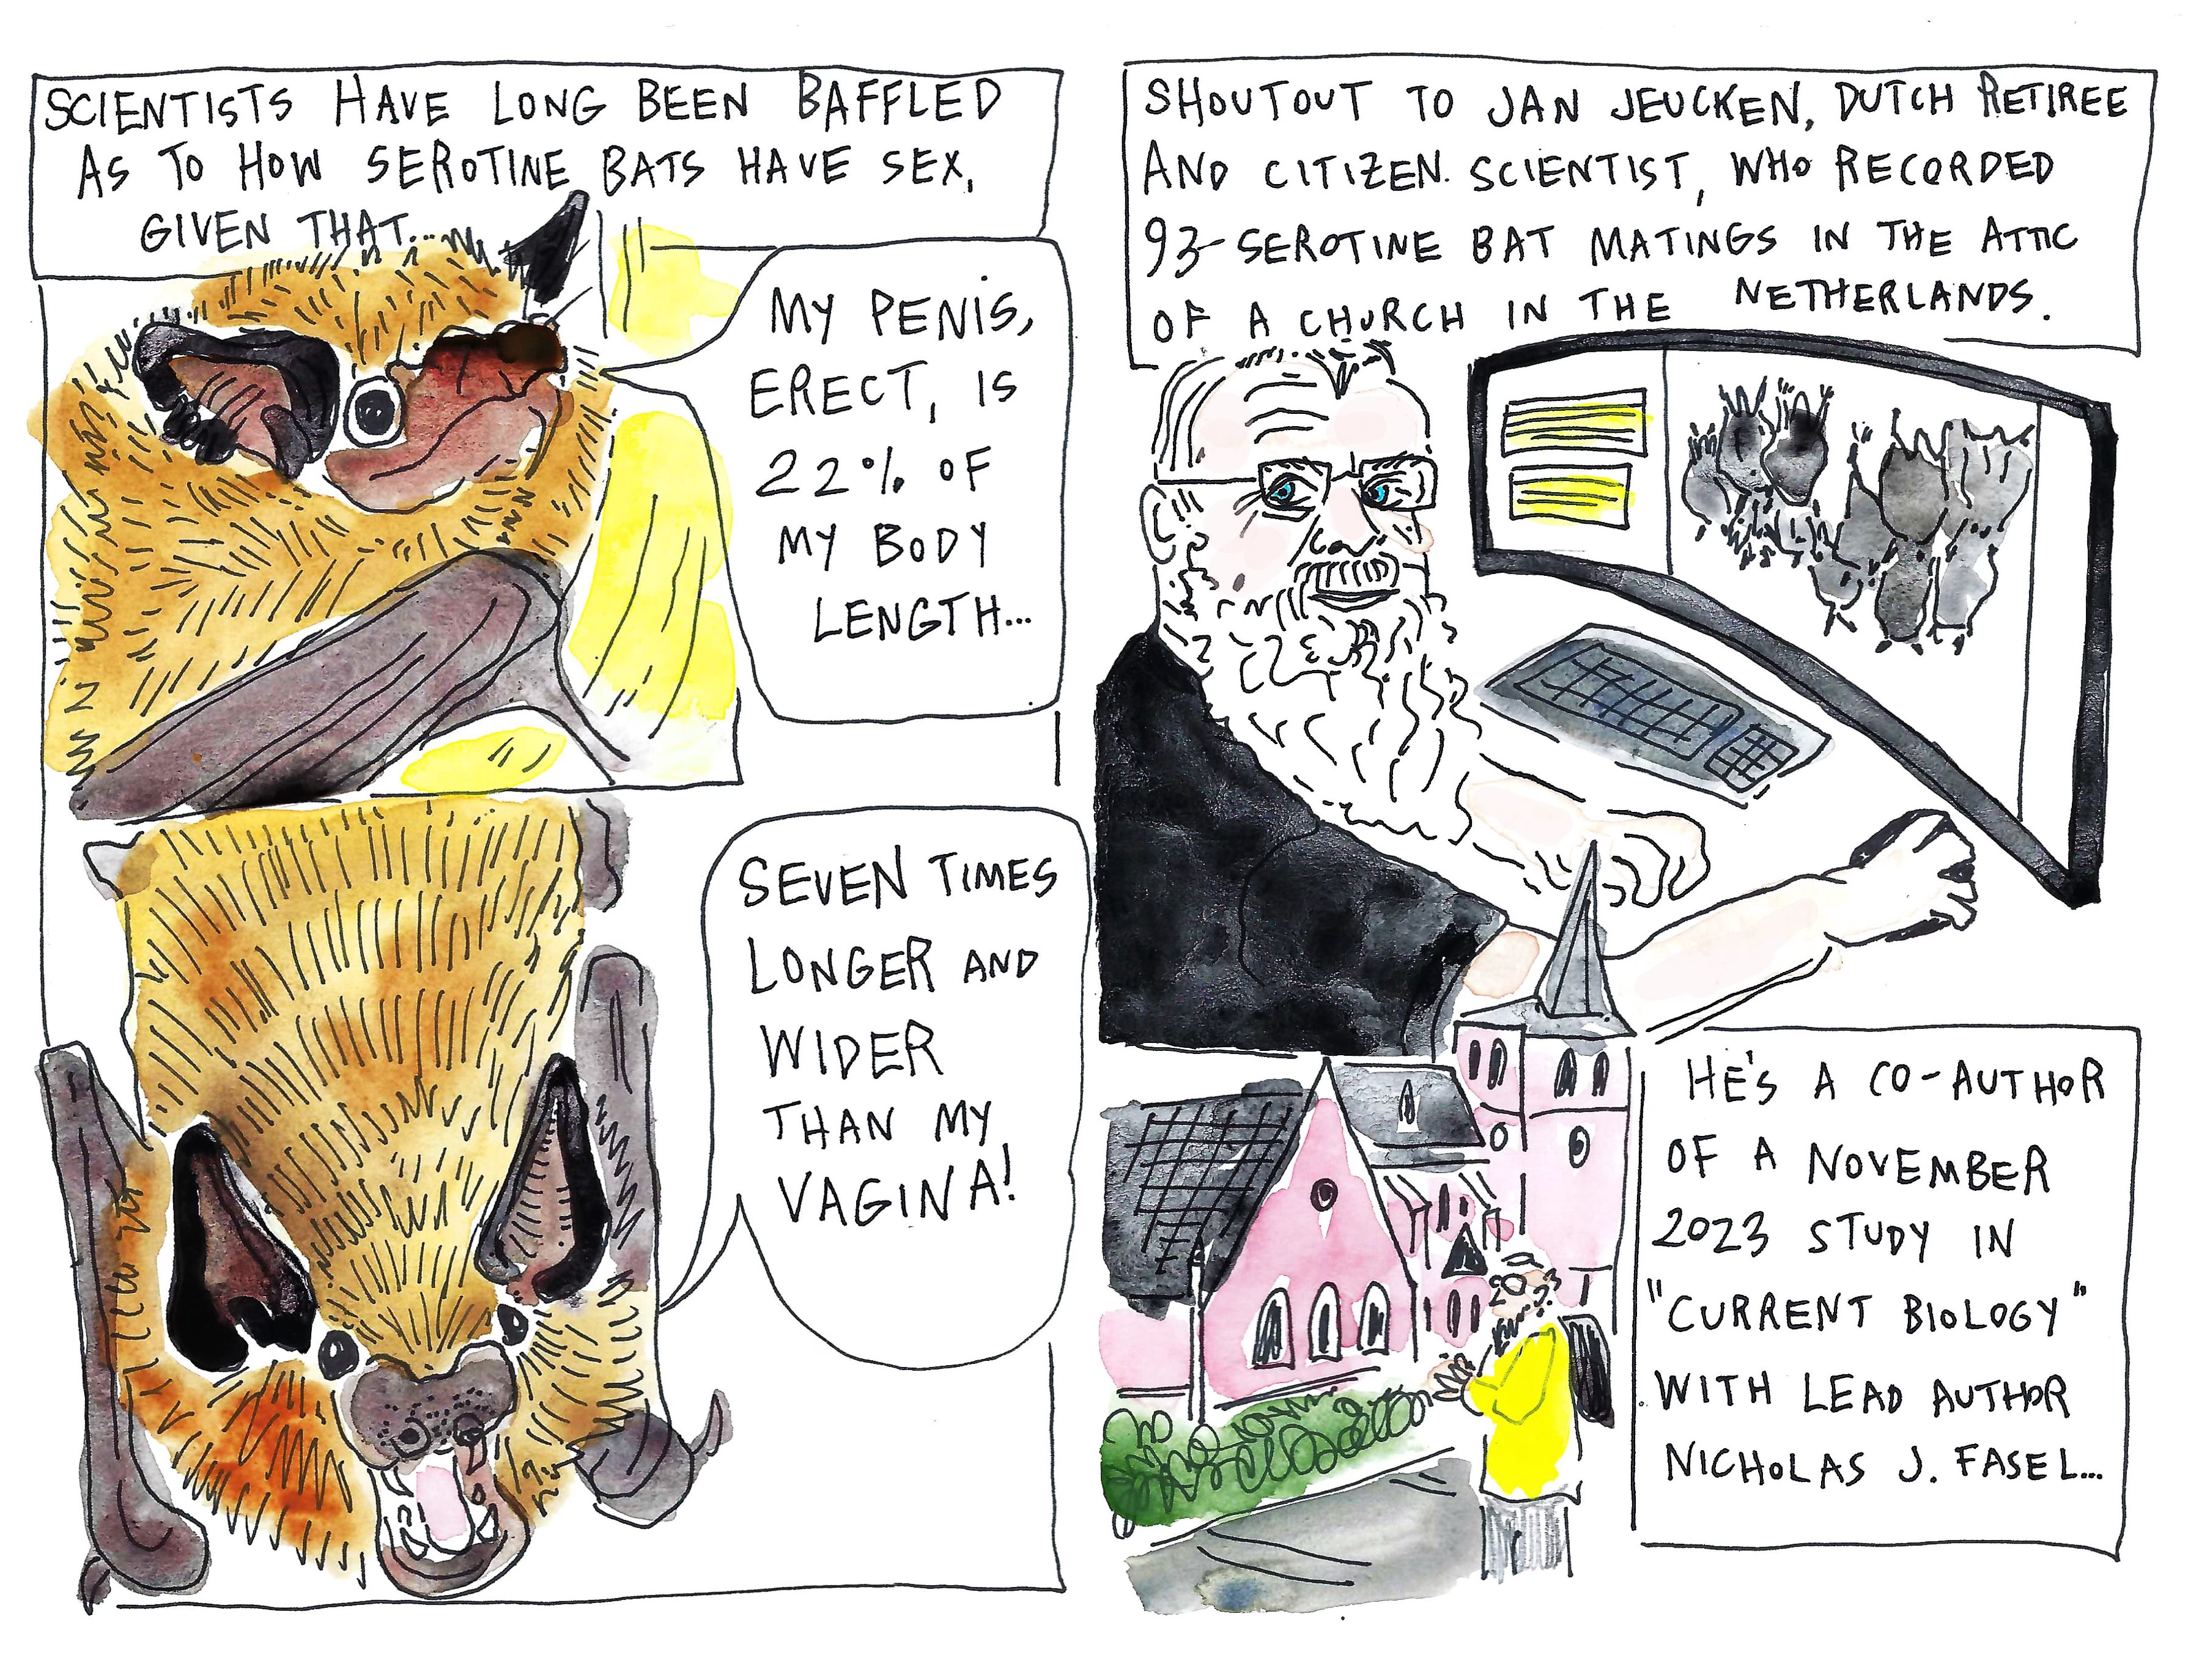 SCIENTISTS HAVE LONG BEEN BAFFLED
AS TO HOW SEROTINE BATS HAVE SEX,
GIVEN THAT...
MY PENIS,
ERECT, IS
22% OF
MY BODY
LENGTH...
SEVEN TIMES
LONGER AND
WIDER
THAN MY
VAGINA!
SHOUTOUT TO JAN JEUCKEN, DUTCH RETIREE
AND CITIZEN SCIENTIST, WHO RECORDED
93 SEROTINE BAT MATINGS IN THE ATTIC
OF A CHURCH IN THE NETHERLANDS.
HE'S A CO-AUTHOR
OF A NOVEMBER
2023 STUDY IN
"CURRENT BIOLOGY"
WITH LEAD AUTHOR
NICHOLAS J. FASEL...